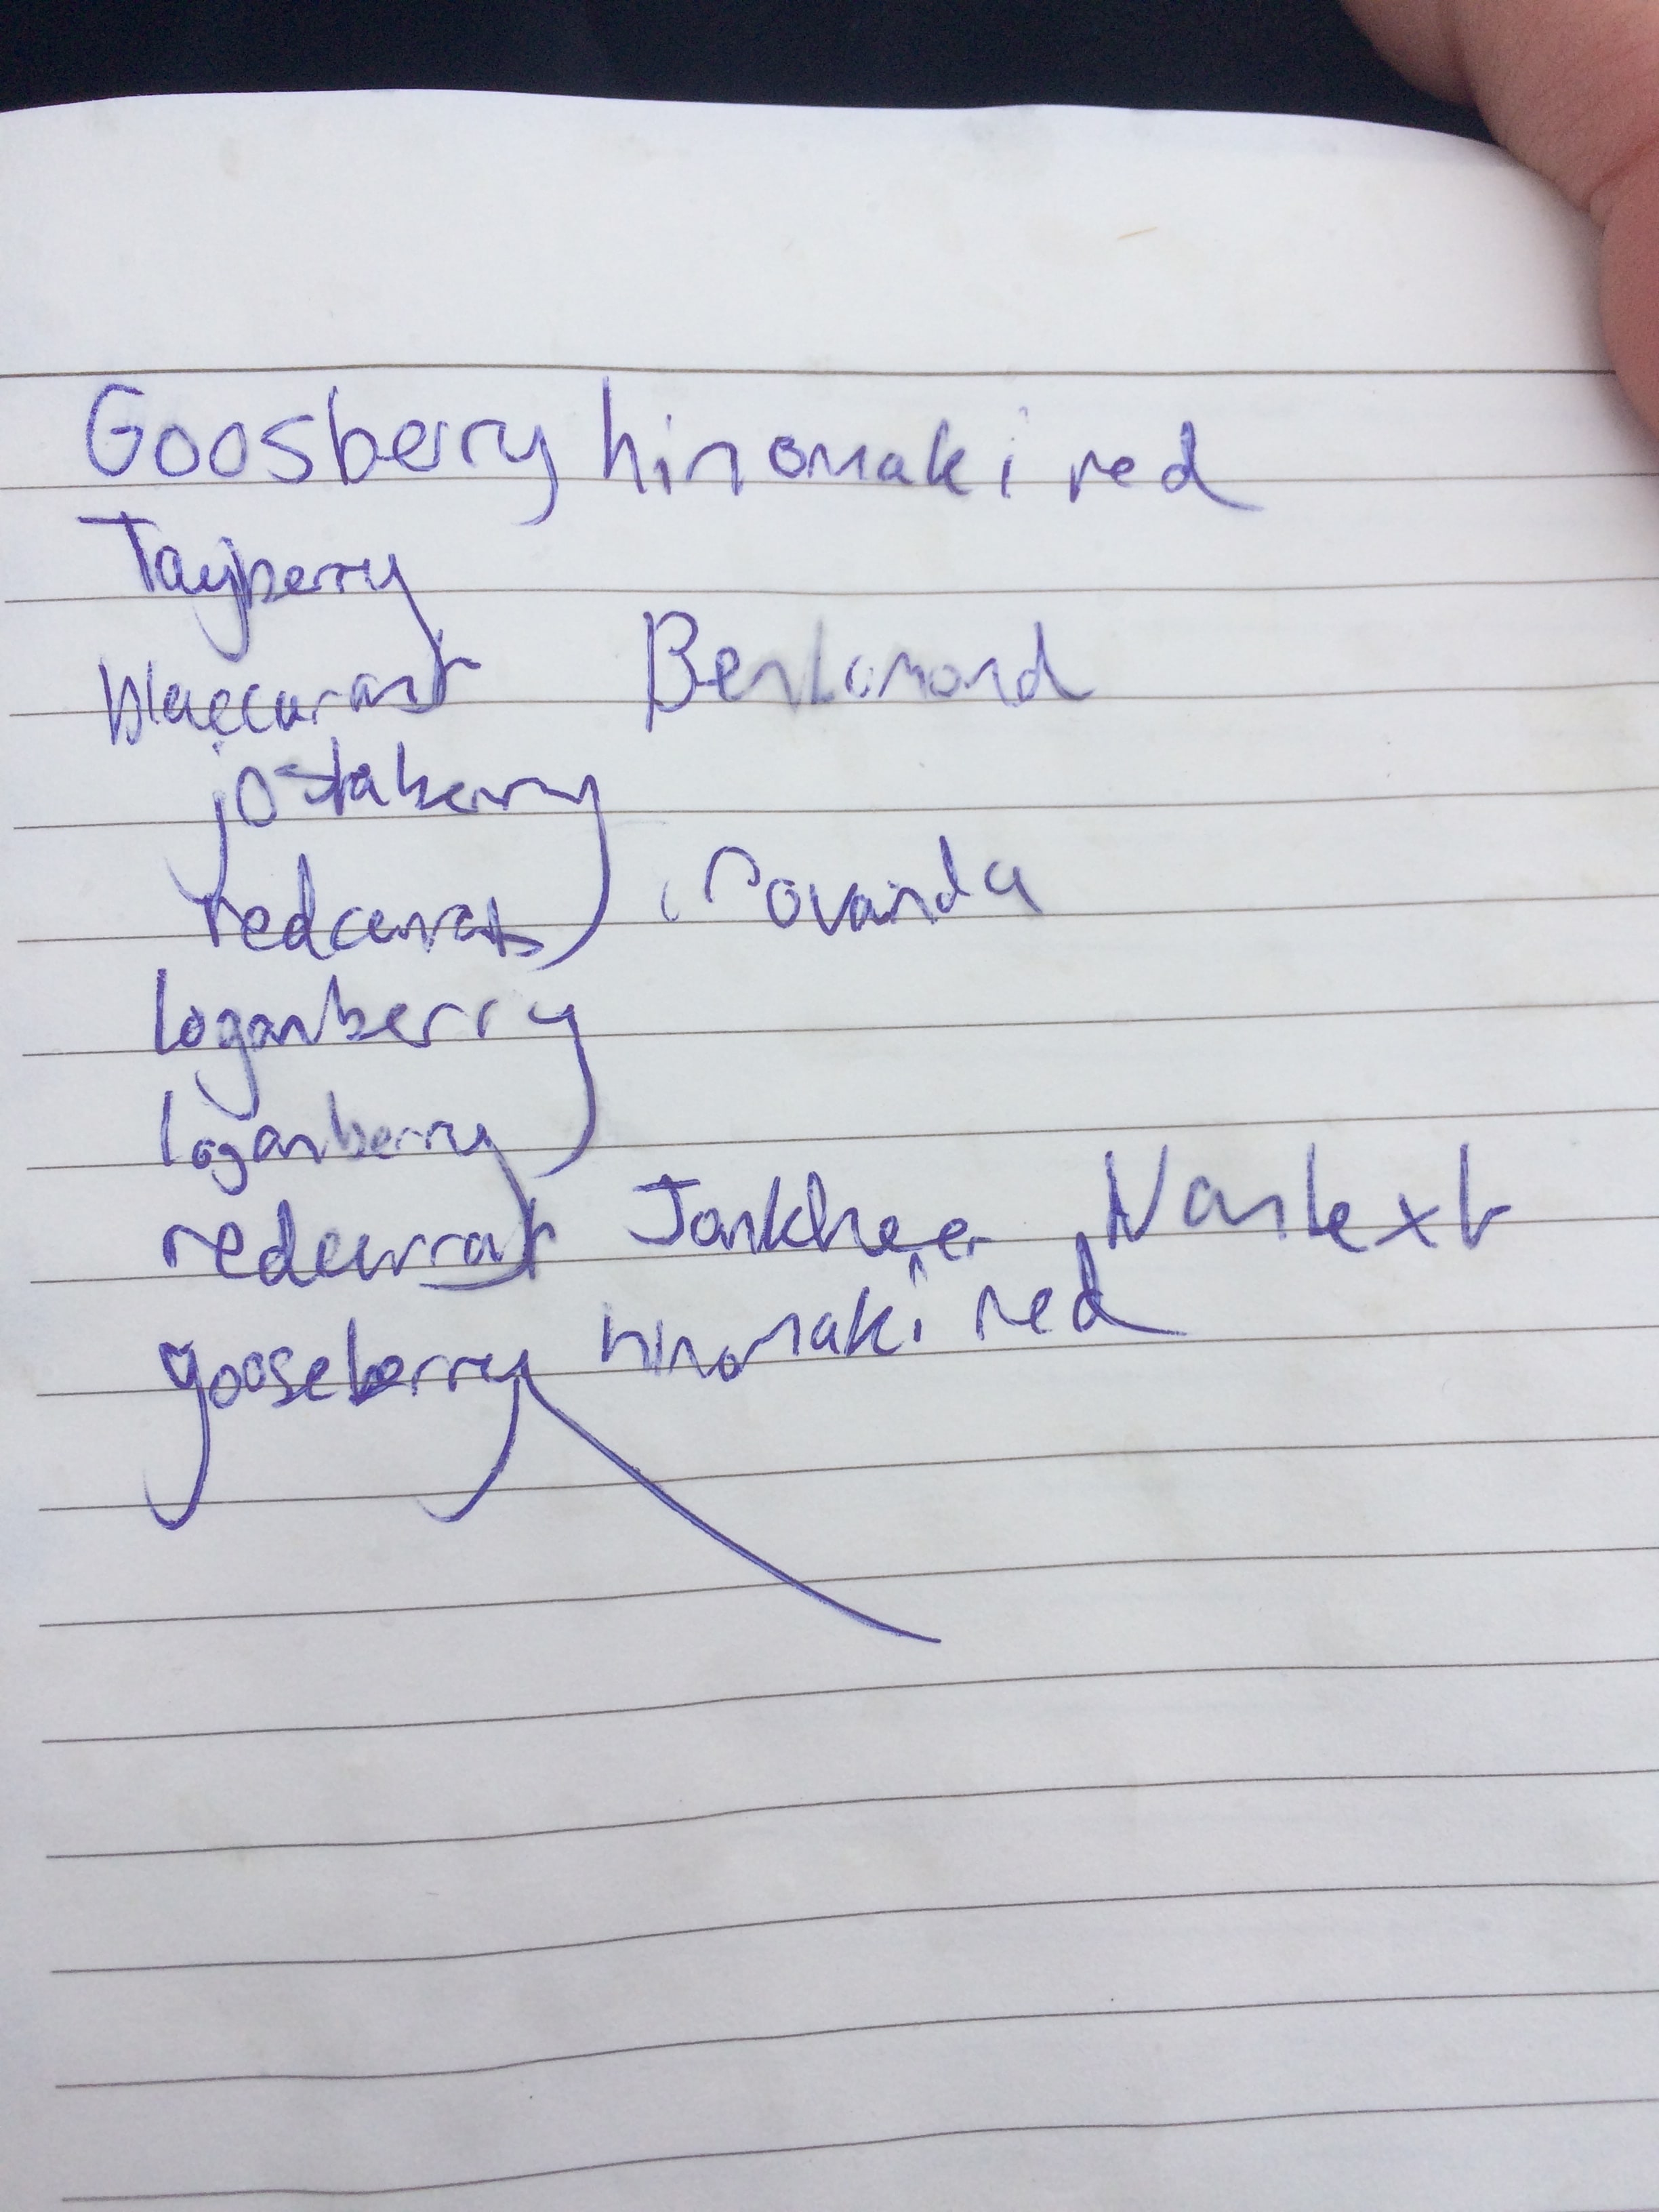 Goosberry hinomaki red
Tayberry
blaeccurant Benlomond
jostaberry
redcurrat rovanda
loganberry
loganberry
redcurrat Jonkheer Vantext
gooseberry hinomaki red